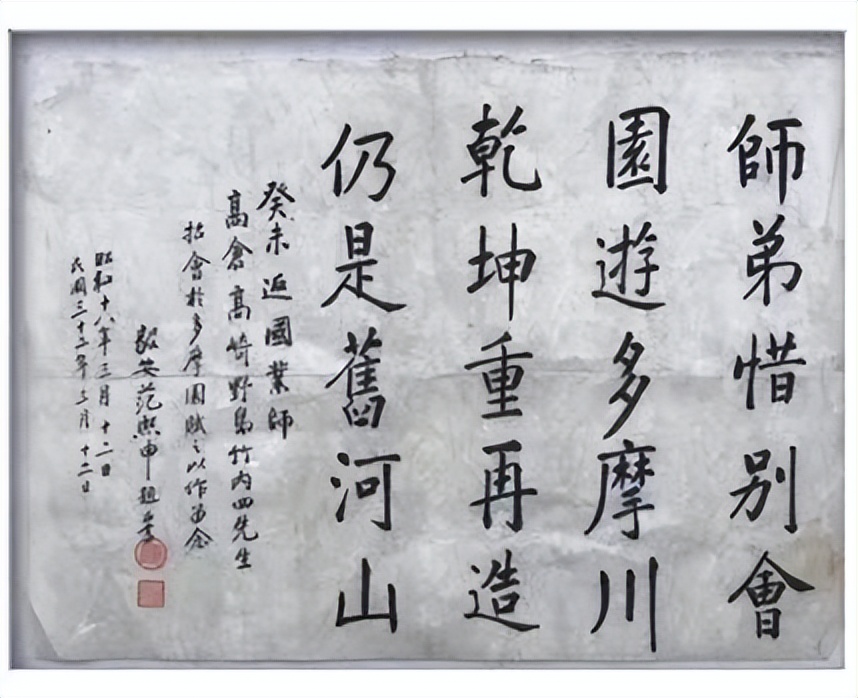 師弟惜别會
園遊多摩川
乾坤重再造
仍是舊河山
癸未返國業師
高倉高崎野島竹内四先生
招會於多摩園賦之以作留念
毅安范熙申題
昭和十八年三月十二日
民國三十二年三月十二日